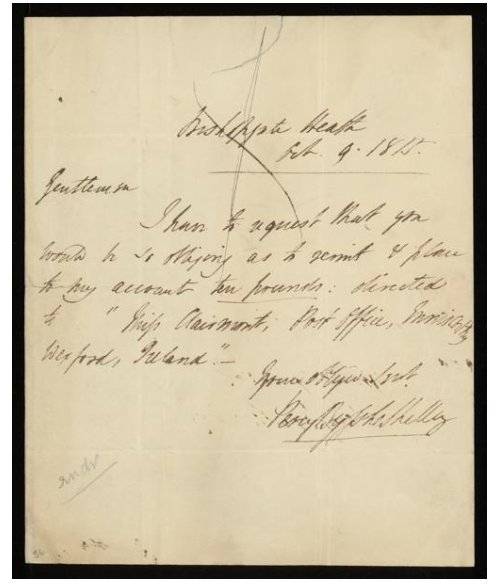 Bishopgate Heath
Oct. 9. 1815.
Gentlemen
I have to request that you
would be so obliging as to remit & place
to my account ten pounds: directed
to "Miss Clairmont, Post Office, Enniscorthy
Wexford, Ireland"—
Your obliged Servt.
Percy Bysshe Shelley